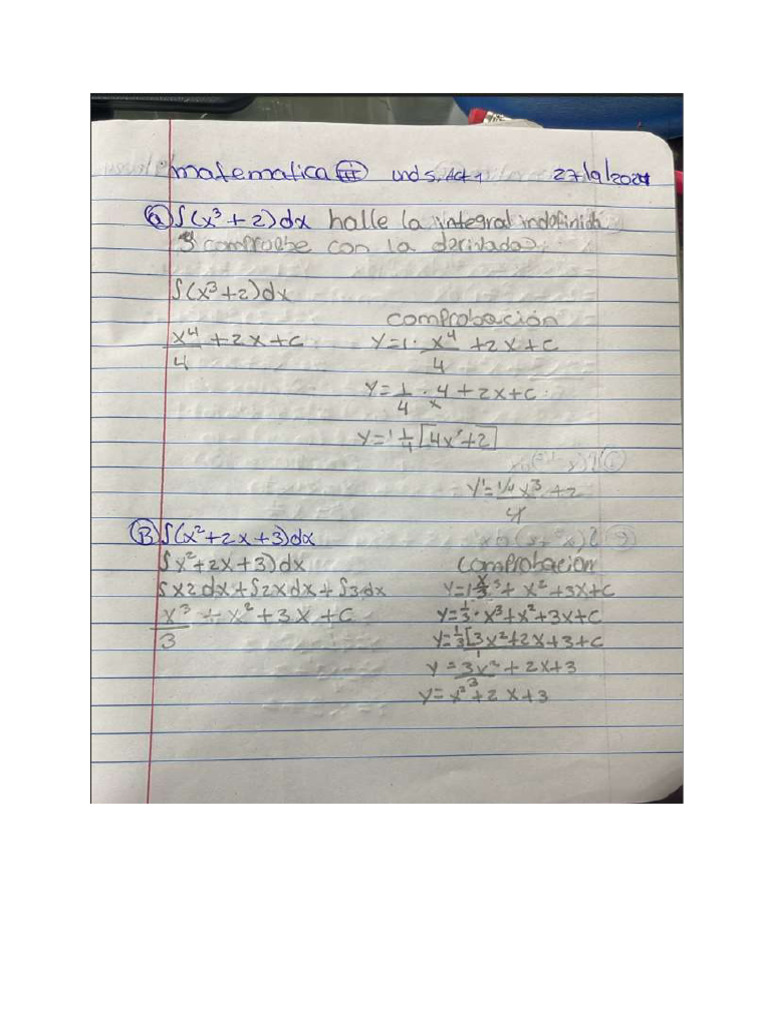 matematica III und 5. Act 1 27/9/2021
a) ∫(x³+2)dx halle la integral indefinida
y compruebe con la derivada.
∫(x³+2)dx
comprobación
x⁴/4 +2x+c y=1· x⁴/4 +2x+c
y=1/4 · 4x +2x+c
y=1 1/4 [4x³+2]
y'=1/4x³/4 +2
B) ∫(x²+2x+3)dx
∫x²+2x+3)dx comprobacion
∫x2dx+∫2xdx+∫3dx y=1 x/3 ³+ x²+3x+c
x³/3 + x²+3x+c y=1/3·x³+x²+3x+c
y=1/3[3x²+2x+3+c
y=3x²/3+2x+3
y=x²+2x+3